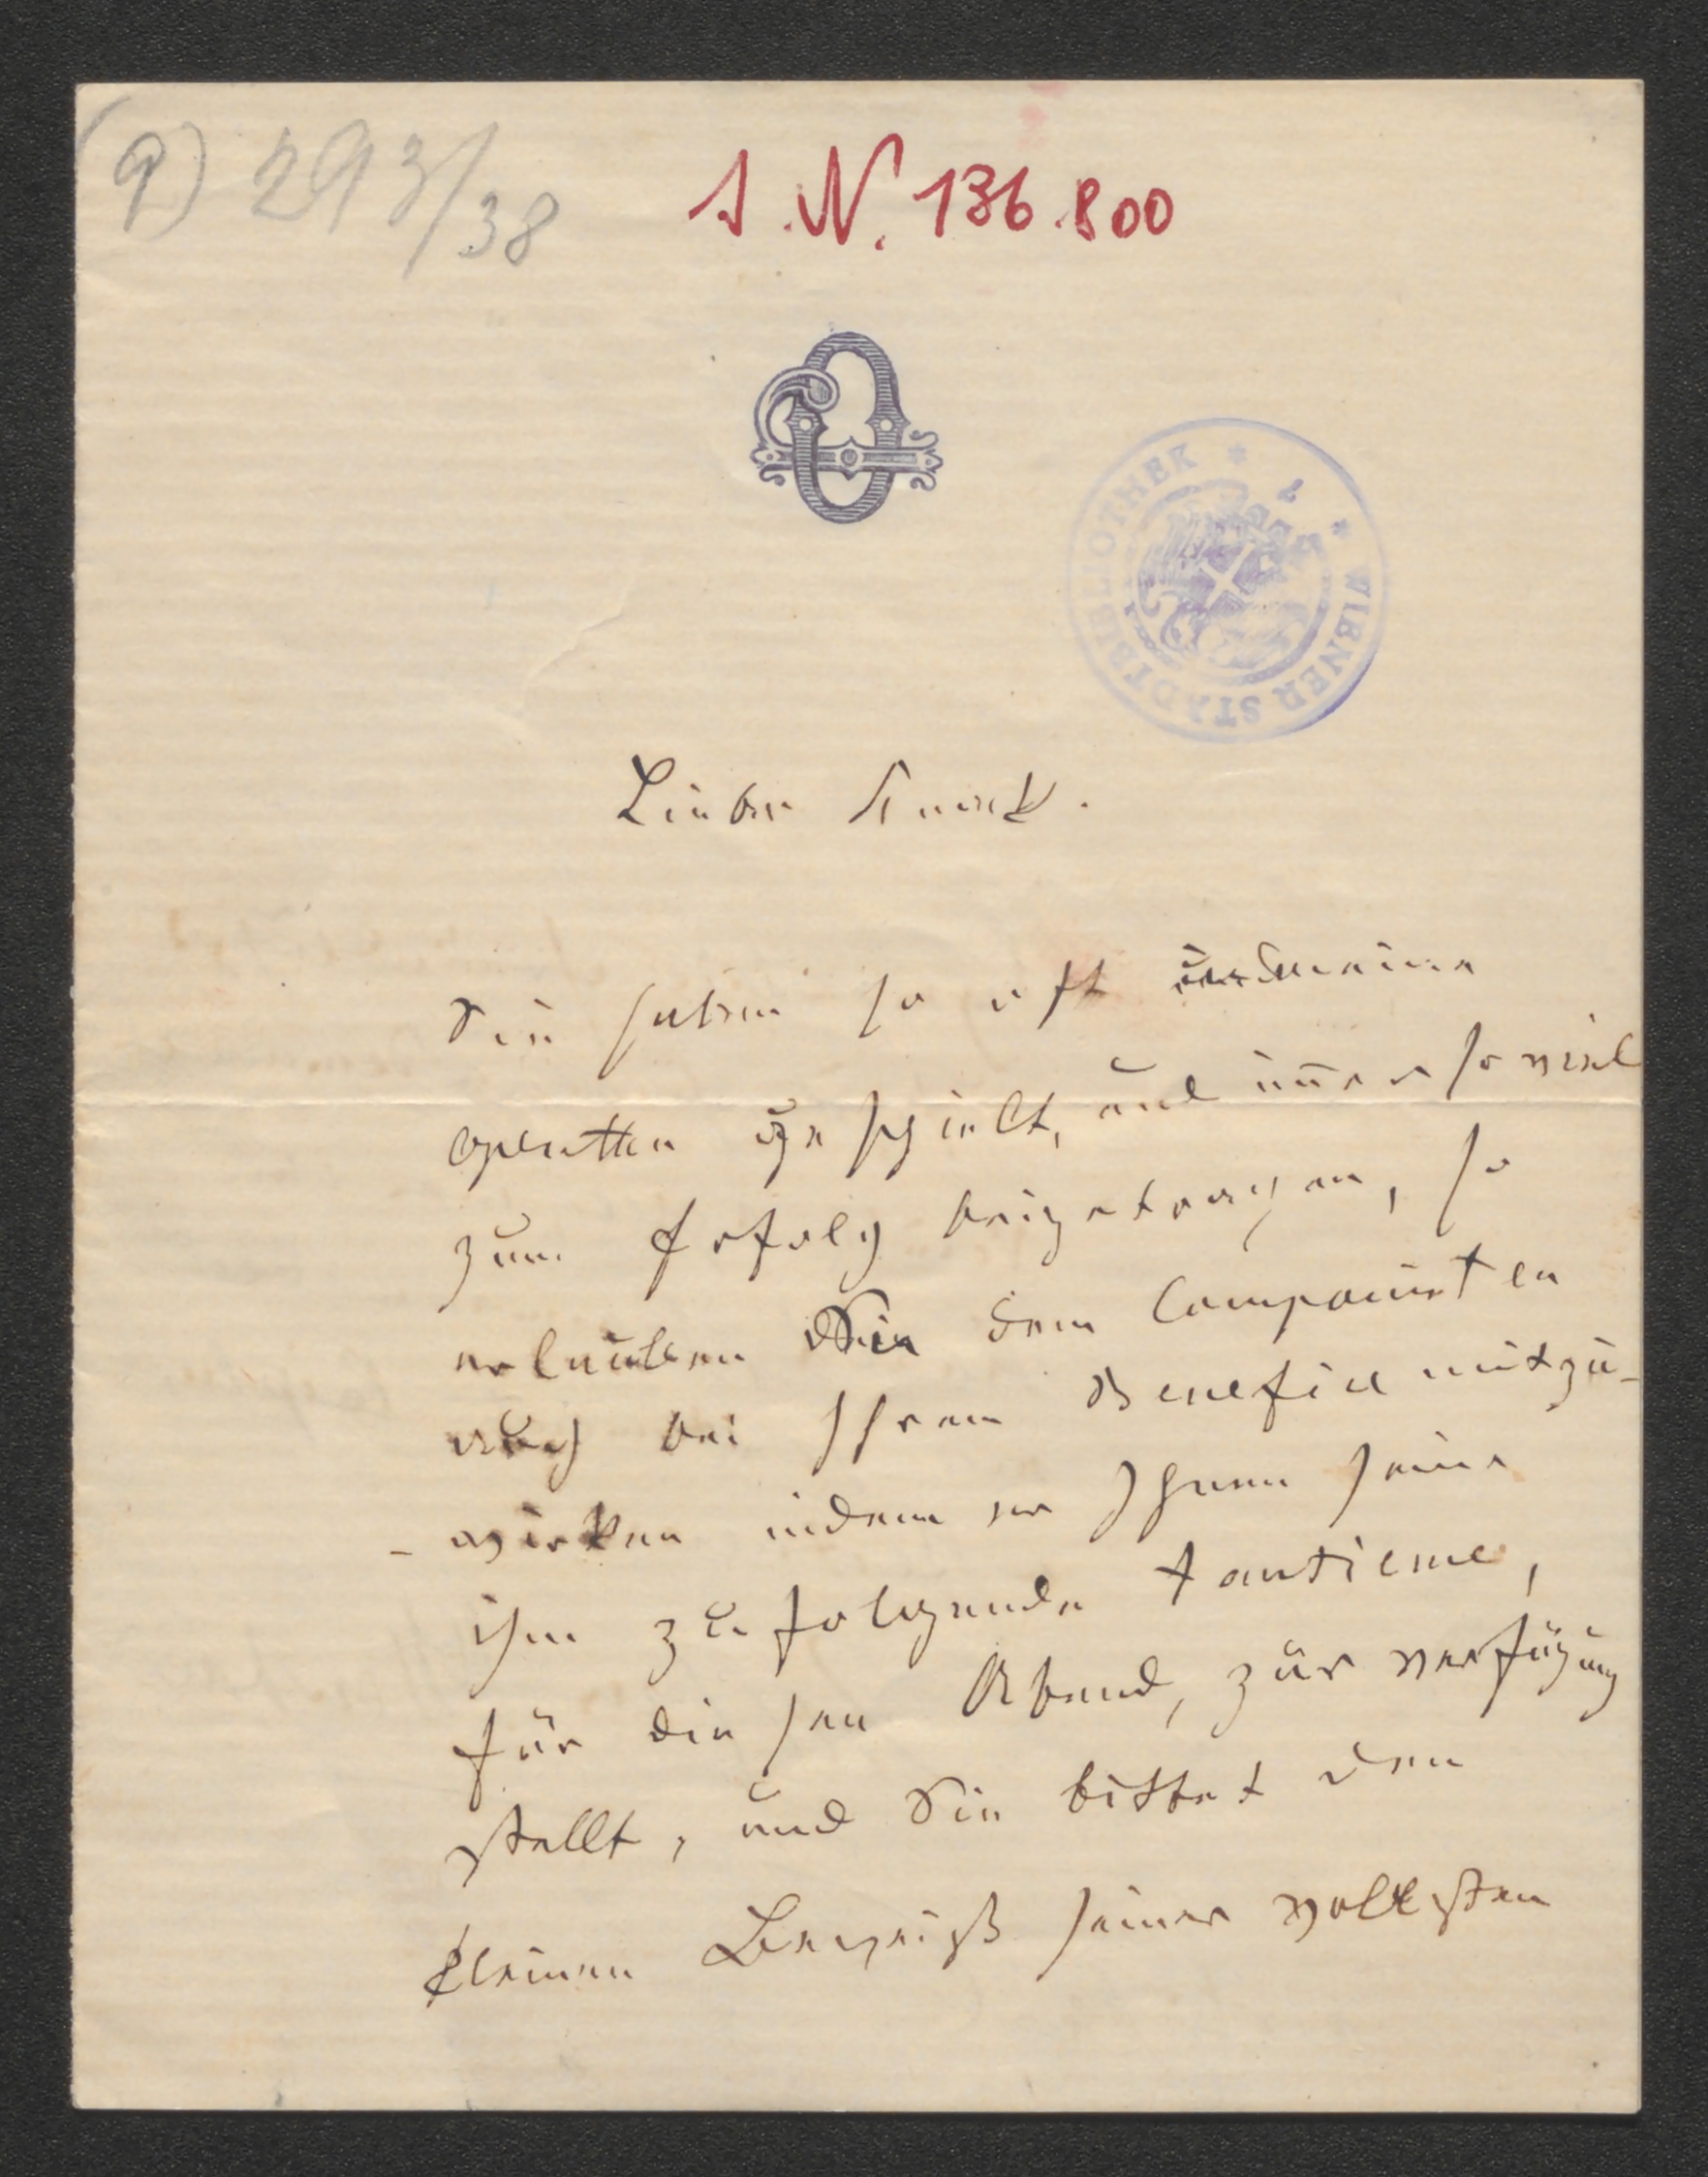 9) 293/38
I.N. 136.800
WIENER STADTBIBLIOTHEK
Lieber Knaack.
Sie haben so oft meine
operetten gespielt, und immer so viel
zum Erfolg beigetragen, so
erlauben Sie dem Componisten
auch bei Ihrem Benefice mitzu-
-wirken indem er Ihnen seine
ihm zufolgende tantieme,
für diesen Abend, zur verfügung
stellt, und Sie bittet den
kleinen Beweiß seiner vollsten